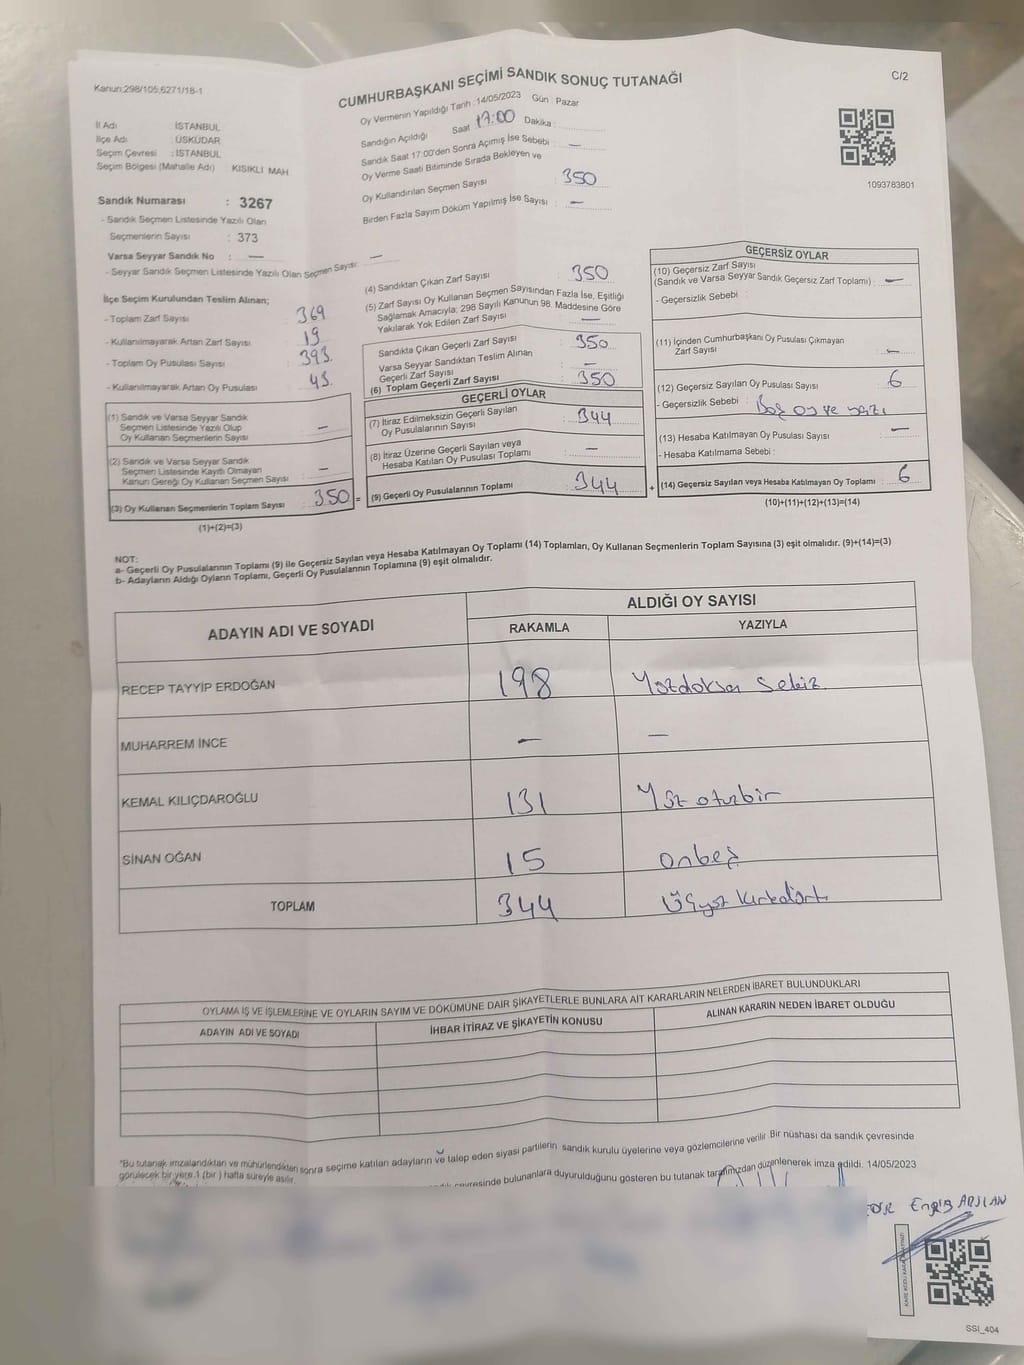 Kanun:298/105,6271/18-1
CUMHURBAŞKANI SEÇİMİ SANDIK SONUÇ TUTANAĞI
C/2
Oy Vermenin Yapıldığı Tarih :14/05/2023 Gün : Pazar
Sandığın Açıldığı Saat 17:00 Dakika :
Sandık Saat 17:00'den Sonra Açımış İse Sebebi : —
Oy Verme Saati Bitiminde Sırada Bekleyen ve
Oy Kullandırılan Seçmen Sayısı : 350
Birden Fazla Sayım Döküm Yapılmış İse Sayısı : —
1093783801
İl Adı : İSTANBUL
İlçe Adı : ÜSKÜDAR
Seçim Çevresi : İSTANBUL
Seçim Bölgesi (Mahalle Adı) KISIKLI MAH.
Sandık Numarası : 3267
- Sandık Seçmen Listesinde Yazılı Olan
Seçmenlerin Sayısı : 373
Varsa Seyyar Sandık No : —
- Seyyar Sandık Seçmen Listesinde Yazılı Olan Seçmen Sayısı: —
İlçe Seçim Kurulundan Teslim Alınan;
- Toplam Zarf Sayısı 369
- Kullanılmayarak Artan Zarf Sayısı 19
- Toplam Oy Pusulası Sayısı 393
- Kullanılmayarak Artan Oy Pusulası 43
(1) Sandık ve Varsa Seyyar Sandık
Seçmen Listesinde Yazılı Olup
Oy Kullanan Seçmenlerin Sayısı : —
(2) Sandık ve Varsa Seyyar Sandık
Seçmen Listesinde Kayıtlı Olmayan
Kanun Gereği Oy Kullanan Seçmen Sayısı : —
(3) Oy Kullanan Seçmenlerin Toplam Sayısı : 350 =
(1)+(2)=(3)
(4) Sandıktan Çıkan Zarf Sayısı : 350
(5) Zarf Sayısı Oy Kullanan Seçmen Sayısından Fazla İse, Eşitliği
Sağlamak Amacıyla; 298 Sayılı Kanunun 98. Maddesine Göre
Yakılarak Yok Edilen Zarf Sayısı : —
Sandıkta Çıkan Geçerli Zarf Sayısı : 350
Varsa Seyyar Sandıktan Teslim Alınan
Geçerli Zarf Sayısı : —
(6) Toplam Geçerli Zarf Sayısı : 350
GEÇERLİ OYLAR
(7) İtiraz Edilmeksizin Geçerli Sayılan
Oy Pusulalarının Sayısı : 344
(8) İtiraz Üzerine Geçerli Sayılan veya
Hesaba Katılan Oy Pusulası Toplamı : —
(9) Geçerli Oy Pusulalarının Toplamı : 344 +
GEÇERSİZ OYLAR
(10) Geçersiz Zarf Sayısı
(Sandık ve Varsa Seyyar Sandık Geçersiz Zarf Toplamı) : —
- Geçersizlik Sebebi :
(11) İçinden Cumhurbaşkanı Oy Pusulası Çıkmayan
Zarf Sayısı : —
(12) Geçersiz Sayılan Oy Pusulası Sayısı : 6
- Geçersizlik Sebebi : Boş oy ve yazı
(13) Hesaba Katılmayan Oy Pusulası Sayısı : —
- Hesaba Katılmama Sebebi :
(14) Geçersiz Sayılan veya Hesaba Katılmayan Oy Toplamı : 6
(10)+(11)+(12)+(13)=(14)
NOT:
a- Geçerli Oy Pusulalarının Toplamı (9) ile Geçersiz Sayılan veya Hesaba Katılmayan Oy Toplamı (14) Toplamları, Oy Kullanan Seçmenlerin Toplam Sayısına (3) eşit olmalıdır. (9)+(14)=(3)
b- Adayların Aldığı Oyların Toplamı, Geçerli Oy Pusulalarının Toplamına (9) eşit olmalıdır.
ADAYIN ADI VE SOYADI ALDIĞI OY SAYISI
RAKAMLA YAZIYLA
RECEP TAYYİP ERDOĞAN 198 Yüzdoksan Sekiz
MUHARREM İNCE — —
KEMAL KILIÇDAROĞLU 131 Yüz otuzbir
SİNAN OĞAN 15 Onbeş
TOPLAM 344 Üçyüz Kırkdört
OYLAMA İŞ VE İŞLEMLERİNE VE OYLARIN SAYIM VE DÖKÜMÜNE DAİR ŞİKAYETLERLE BUNLARA AİT KARARLARIN NELERDEN İBARET BULUNDUKLARI
ADAYIN ADI VE SOYADI İHBAR İTİRAZ VE ŞİKAYETİN KONUSU ALINAN KARARIN NEDEN İBARET OLDUĞU
*Bu tutanak imzalandıktan ve mühürlendikten sonra seçime katılan adayların ve talep eden siyasi partilerin sandık kurulu üyelerine veya gözlemcilerine verilir. Bir nüshası da sandık çevresinde
görülecek bir yere 1 (bir) hafta süreyle asılır.
çevresinde bulunanlara duyurulduğunu gösteren bu tutanak tarafımızdan düzenlenerek imza edildi. 14/05/2023
Engin ARSLAN
SSI_404